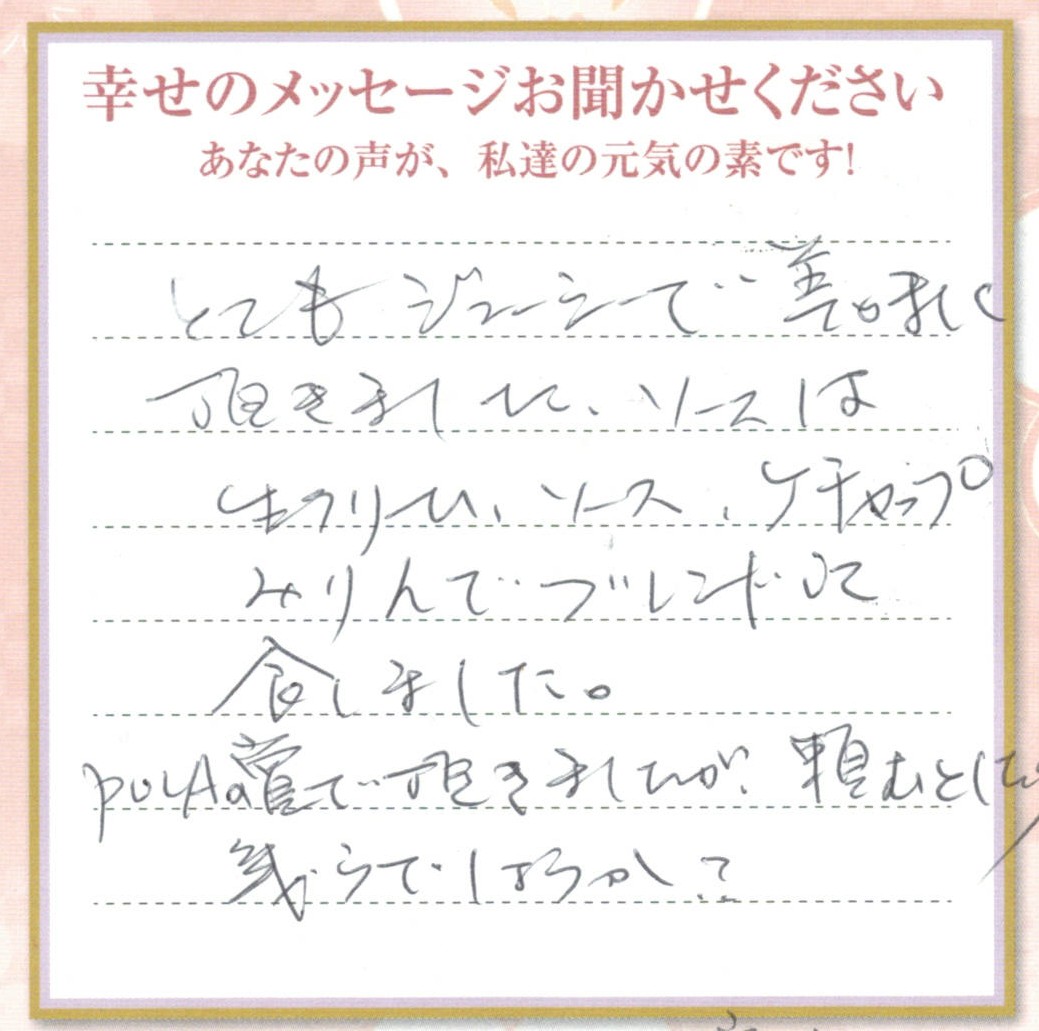 幸せのメッセージお聞かせください
あなたの声が、私達の元気の素です!
とてもジューシーで美味しく
頂きました、ソースは
生クリーム、ソース、ケチャップ
みりんでブレンドして
食しました。
POLAの賞で頂きましたが、頼むとしたら
幾らでしょうか?